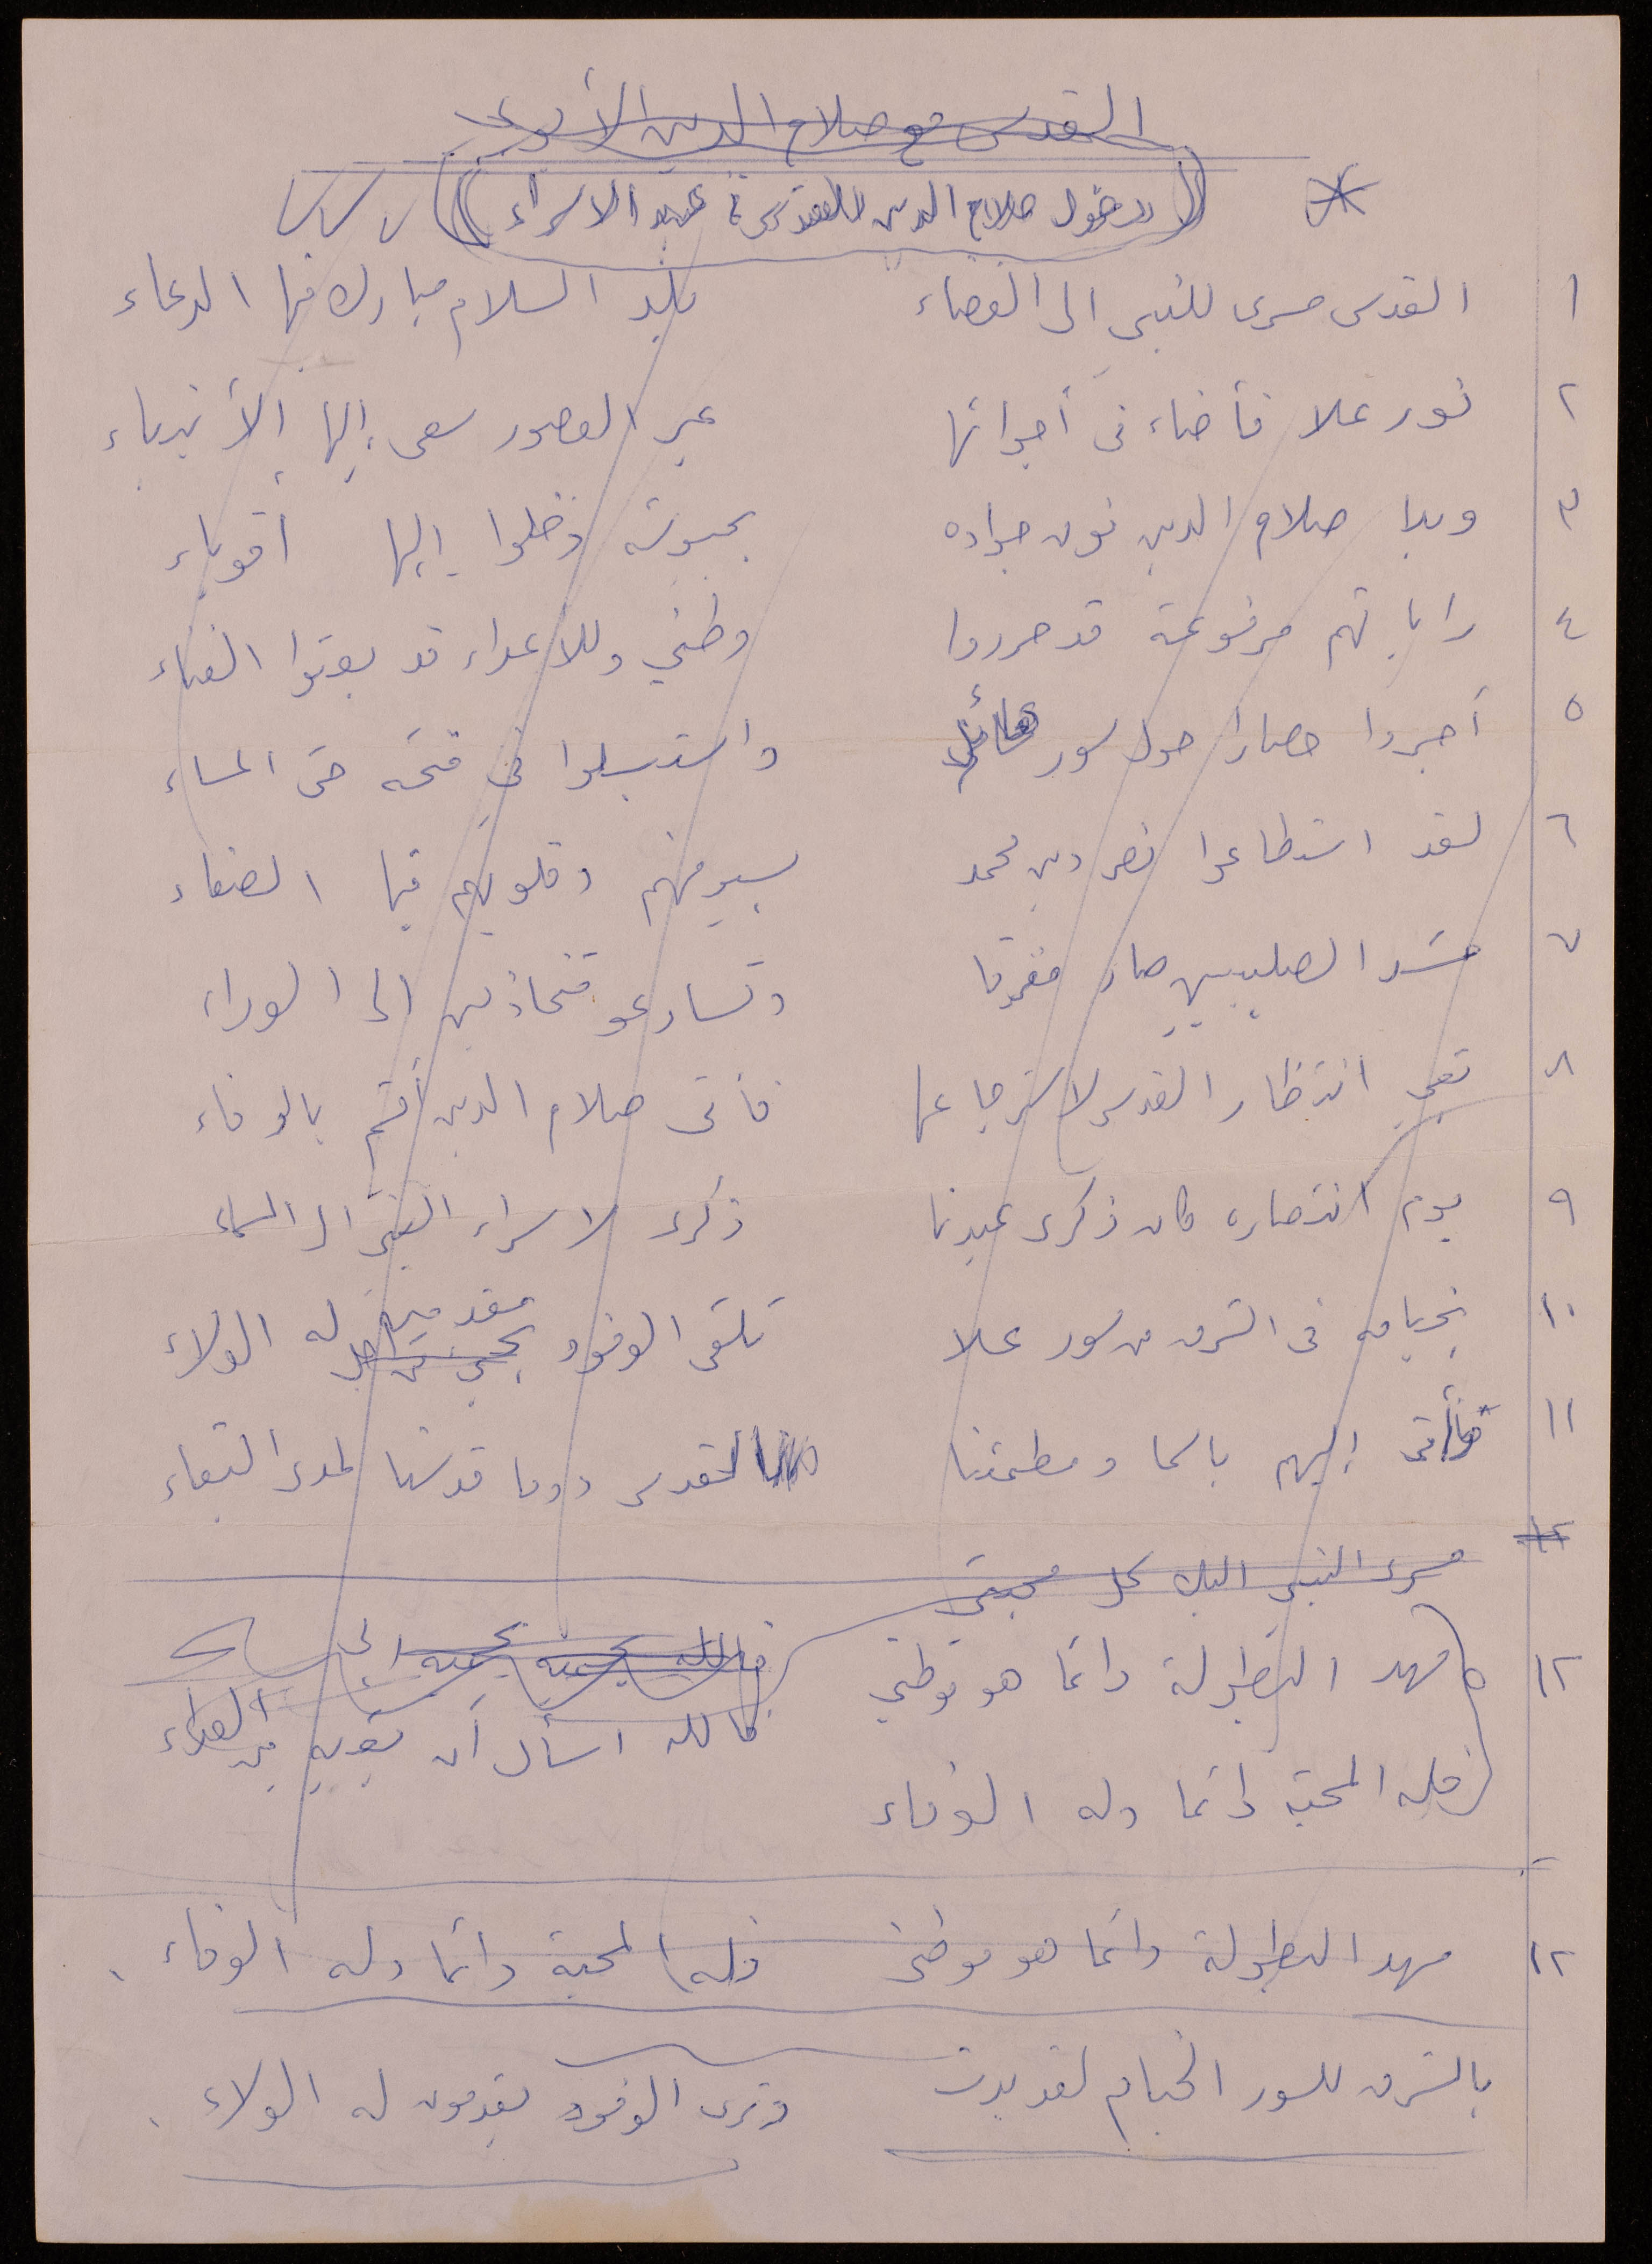 القدس مع صلاح الدين الأيوبي
(( دخول صلاح الدين للقدس في عيد الاسراء ))
١ القدس مسرى للنبي الى الفضاء بلد السلام مبارك فيها الدعاء
٢ نور علا فأضاء في أجوائها عبر العصور سعى إليها الأنبياء
٣ وبدا صلاح الدين فوق جواده بجيوشه دخلوا إليها أقوياء
٤ راياتهم مرفوعة قد حرروا وطني وللأعداء قد بعثوا الفناء
٥ أجروا حصارا حول سور هائل واستبسلوا في فتحه حتى المساء
٦ لقد استطاعوا نصر دين محمد بسيوفهم وقلوبهم فيها الصفاء
٧ حشد الصليبيين صار مفرقا وتسارعو متخاذلين الى الوراء
٨ تعبى انتظار القدس لاسترجاعها فأتى صلاح الدين أقسم بالوفاء
٩ يوم انتصاره كان ذكرى عيدنا ذكرى لاسراء النبي الى السماء
١٠ بخيامه في الشرق من سور علا تلقى الوفود مقدمين له الولاء
١١ فأتى إليهم باسما ومطمئنا القدس دوما قدسنا لمدى البقاء
١٢ مسرى النبي اليك كل محبتى
١٢ مهد البطولة دائما هو موطني فالله يحميه
كالله اسأل أن يقيه من العداء
فله المحبة دائما وله الوفاء
١٢ مهد البطولة دائما هو موطني فله المحبة دائما وله الوفاء .
بالشرق للسور الخيام لقد بدت وترى الوفود يقدمون له الولاء .